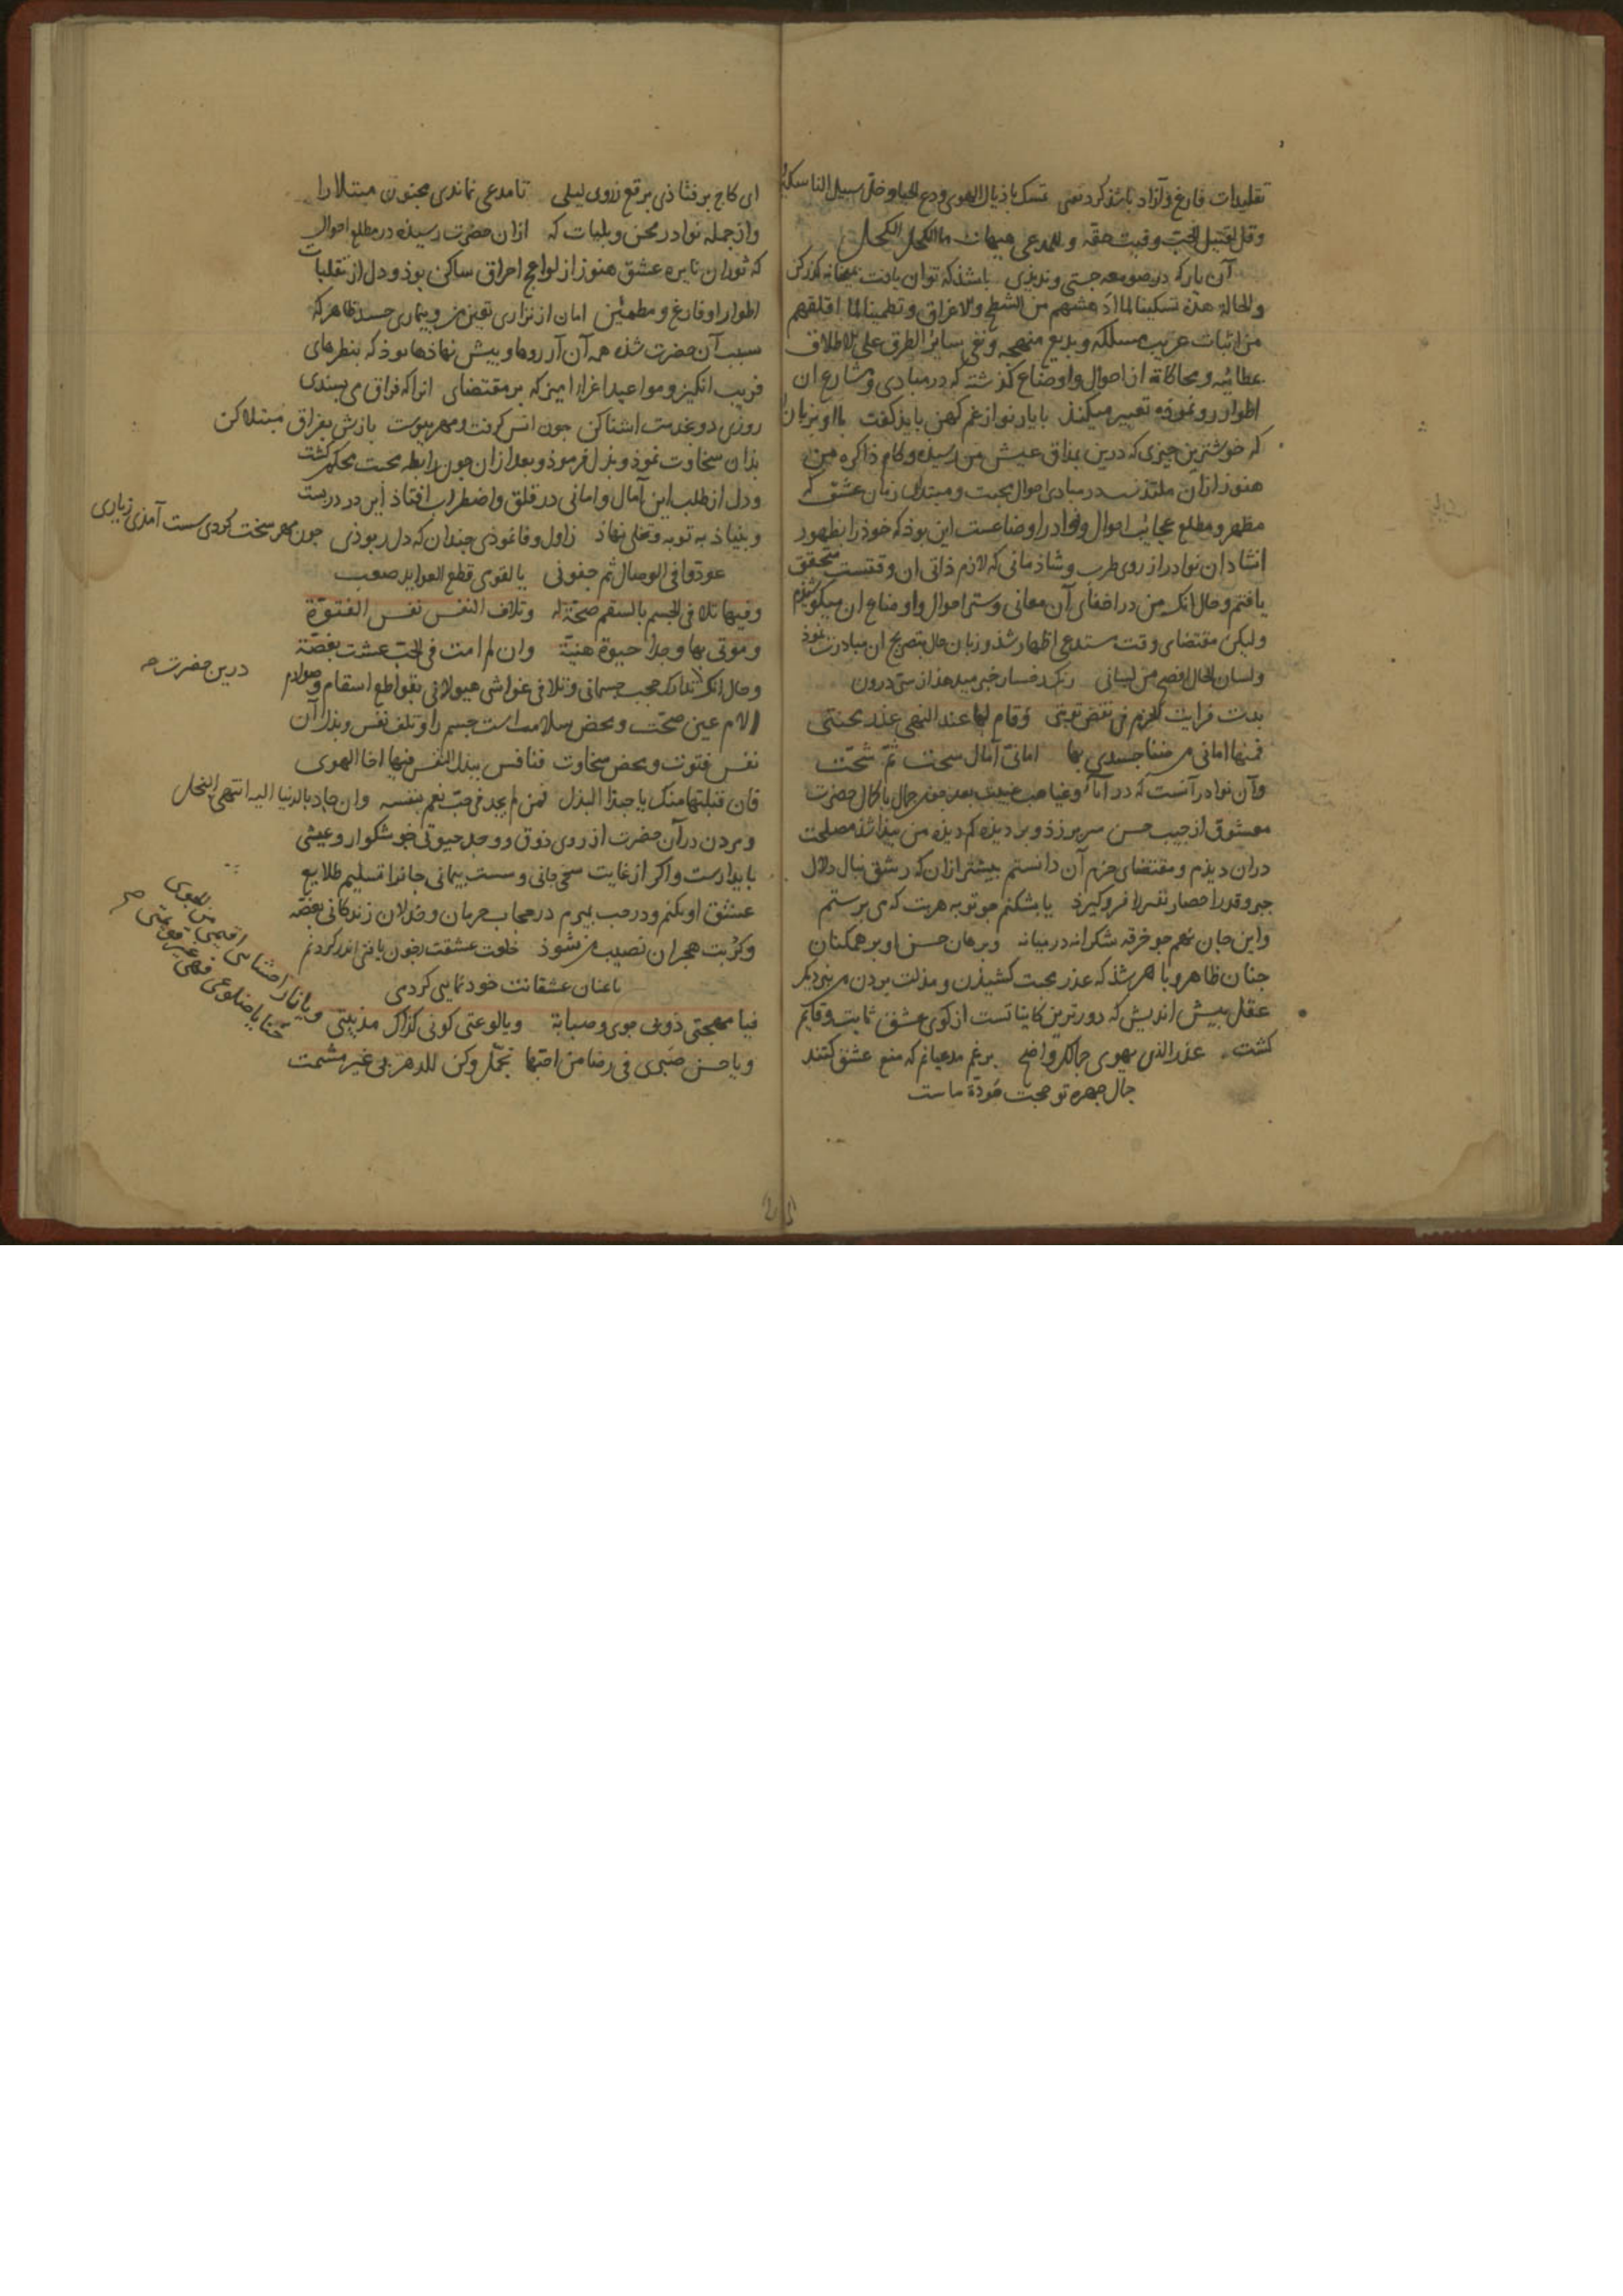 تقلیدات فارغ و آزاد باید کرد تمسک باذیال الهوی ودع الحیا وخل سبیل الناسکین
وقل لقتیل الحب وفیت حقه وللمدعی هیهات ما الکحل الکحل
آن یار که در صومعه جستی و ندیدی باشد که توان یافت میخانه گذر کن
والحالة هذه تسکینا لما ادهشهم من الشطح والاغراق وتطمینا لما اقلقهم
من اثبات غریب مسلکه وبدیع منهجه ونفی سائر الطرق علی الاطلاق
و محاکاة از احوال و اوضاع گذشته که در مبادی و مشارع آن
اطوار رو نموده تعبیر میکند با یار نو از غم کهن باید گفت با او بزبان
که خوشترین چیزی که درین مذاق عیش من رسیده و کام ذاکره من
هنوز ازان ملتذ در مبادی احوال محبت و مبتدای زمان عشق که
مظهر و مطلع عجایب احوال و نوادر اوضاعست این بود که خود را بظهور
انشاد ان نوادر از روی طرب و شادمانی که لازم ذاتی ان وقتست متحقق
یافتم و حال انک من در اخفای آن معانی و ستر احوال و اوضاع ان میکوشیدم
ولیکن مقتضای وقت مستدعی اظهار شد و زبان حال بتصریح ان مبادرت نمود
ولسان الحال افصح من لسانی رنک رخسار خبر میدهد از سر درون
بدت فرایت الحزم فی نقض توبتی وقام لها عند النهی عذر محنتی
فمنها امانی من ضنا جسدی بها امانی آمال سخت ثم شحت
وآن نوادر آنست که در غیب بعد چون جمال با کمال حضرت
معشوق از جیب حسن سر برزد و بر دیده من پیدا شد مصلحت
دران دیدم و مقتضای حزم آن دانستم بیشتر ازان که رشق نبال دلال
جبر و قدرا حصار نفس را فروگیرد یا بشکنم چو توبه هر بت که می پرستم
واین جان نهم چو خرقه شکرانه در میانه وبرهان حسن او بر همکنان
چنان ظاهر و باهر شد که عذر محبت کشیدن و مذلت بردن من نزدیک
عقل پیش اندیش که دورترین کاینا تست از کوی عشق ثابت و قایم
گشت عذر الذی یهوی جمالک واضح برغم مدعیانم که منع عشق کنند
جمال چهره تو حجت موجه ماست
ای کاج برفتادی برقع ز روی لیلی تا مدعی نماندی مجنون مبتلا را
واز جمله نوادر محن و بلیات که ازان حضرت رسیده در مطلع احوال
که ثوران نایره عشق هنوز از لواعج احراق ساکن بود و دل از تقلبات
اطوار او فارغ و مطمئن امان از نزاری تعین من و بیماری جسد ظاهر که
سبب آن حضرت شده همه آن آرزوها و پیش نهادها بود که بنظرهای
فریب انگیز و مواعید اغرا امیز که بر مقتضای انرا که فراق می پسندی
روزی دو بخدمت اشنا کن چون انس گرفت و مهر پیوست بازش بفراق مبتلا کن
بدان سخاوت نمود و بذل فرمود و بعد ازان چون رابطه محبت محکم گشت
و دل از طلب این آمال و امانی در قلق و اضطراب افتاد این در در بست
و بنیاد به توبه و تخلی نهاد ز اول وفا نمودی چندان که دل ربودی چون مهر سخت کردی سست آمدی زیاری
عودونی الوصال ثم جفونی یا لقومی قطع العواید صعب
وفیها تلافی الجسم بالسقم صحة له وتلاف النفس نفس الفتوة
وموتی بها وجدا حیوة هنیة وان لم امت فی الحب عشت بغصة
وحال انک تدارک حجب جسمانی و تلافی غواشی هیولانی بقواطع اسقام وصوارم
الام عین صحت و محض سلامت است جسم را و تلف نفس و بذل آن درین حضرت
نفس فتوت و محض سخاوت فنافس ببذل النفس فیها اخا الهوی
فان قبلتها منک یا حبذا البذل فمن لم یجد فی حب نعم بنفسه وان جاد بالدنیا الیه انتهی البخل
ومردن در آن حضرت از روی ذوق و وجد حیوتی خوشگوار و عیشی
پایدارست و اگر از غایت سخت جانی و سست پیمانی جانرا تسلیم طلایع
عشق او نکنم و در حب نمیرم در حجاب حرمان و خذلان زندگانی بغصه
وکربت هجران نصیب من شود خلوت عشقت چون یافتی اندر گردنم
باعنان عشقانت خودنمایی کردمی
فیا مهجتی ذوبی جوی وصبابة ویا لوعتی کونی کذاک مذیبتی
ویا نار احشائی اقیمی من الجوی حنایا ضلوعی فهی غیر قویمة
ویا حسن صبری فی رضا من احبها تجمل وکن للدهر بی غیر مشمت